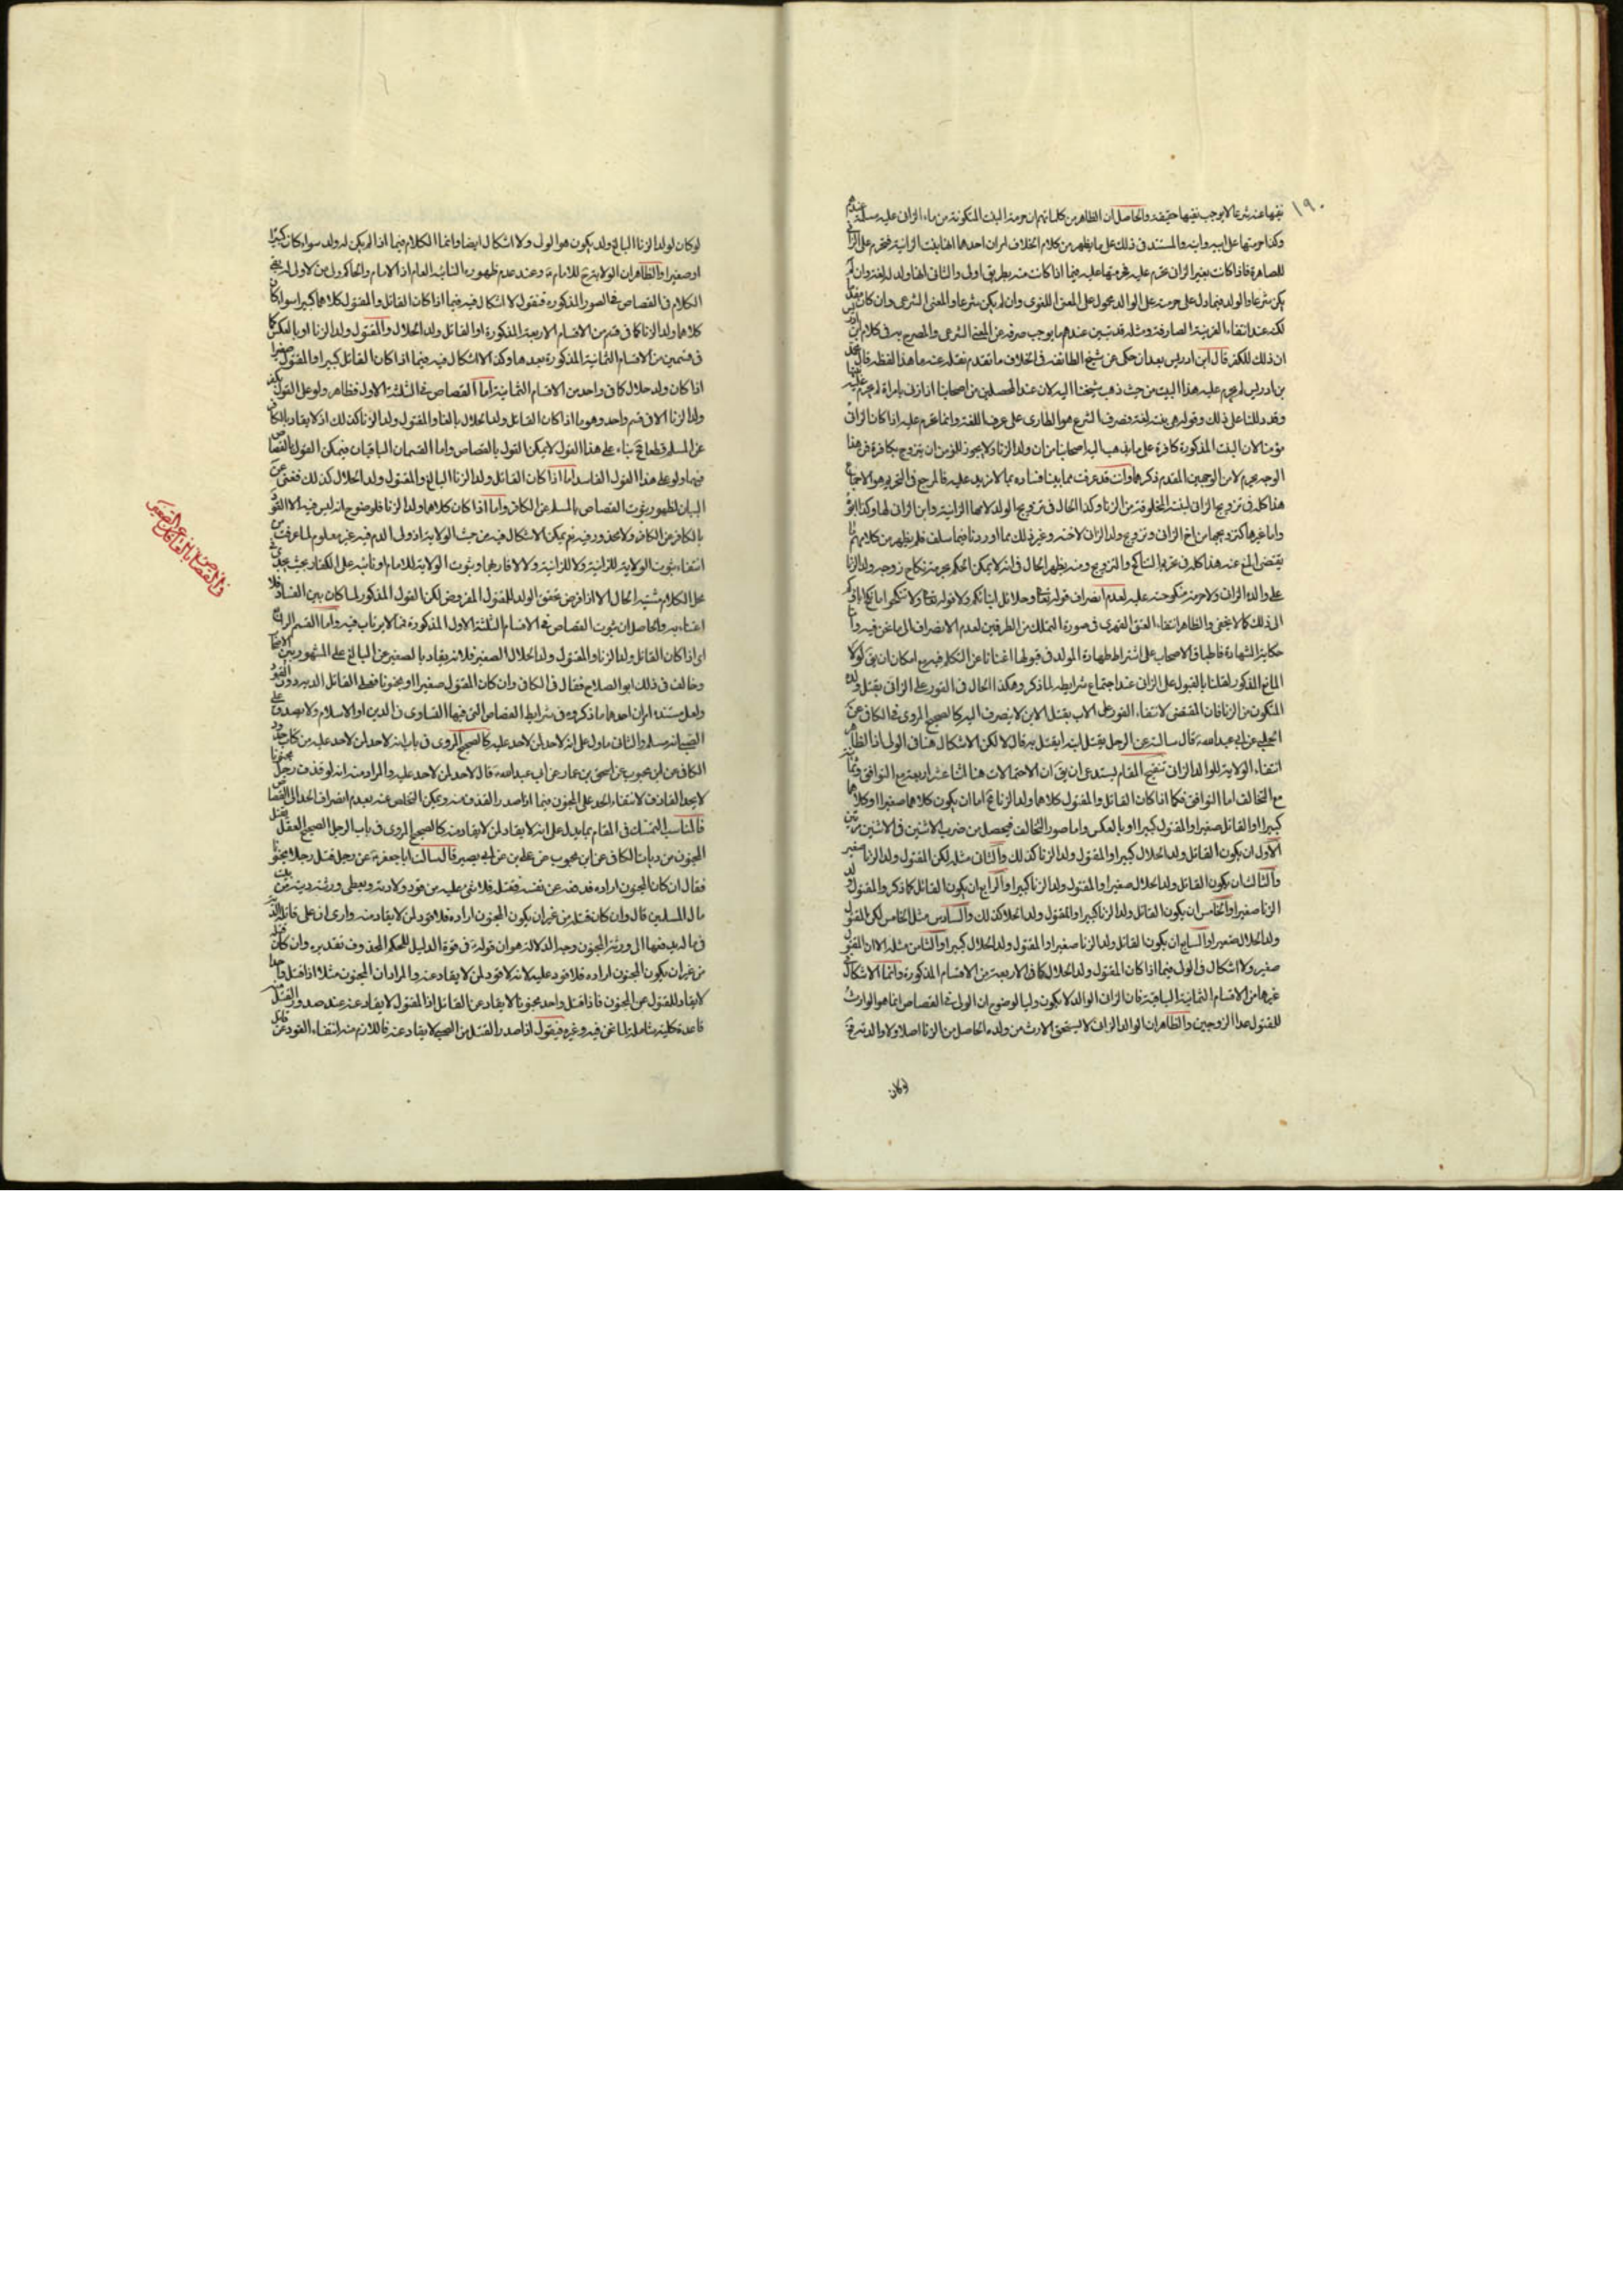 ١٩٠
نفيها عنه شرعا لا يوجب نفيها حقيقة والحاصل ان الظاهر من كلماتهم ان حرمة البنت المتكونة من ماء الزاني عليه مسلمة عندهم
وكذا حرمتها على ابيه وابنه والمستند في ذلك على ما يظهر من كلام الخلاف امران احدهما انها بنت الزانية فتحرم على الزاني
للمصاهرة فاذا كانت بغير الزاني تحرم عليه فحرمتها عليه فيما اذا كانت منه بطريق اولى والثاني انها ولد له لغة وان لم
يكن شرعا والولد فيما دل على حرمته على الوالد محمول على المعنى اللغوي وان لم يكن شرعا والمعنى الشرعي وان كان
لكنه عند انتفاء القرينة الصارفة ومثله قد تبين عندهم ما يوجب صرفه عن المعنى الشرعي والمصرح به في كلام ابن ادريس
ان ذلك للكفر قال ابن ادريس بعد ان حكى عن شيخ الطائفة في الخلاف ما تقدم نقله عنه ما هذا لفظه قال محمد
بن ادريس لم يحرم عليه هذا البنت من حيث ذهب شيخنا اليه لان عند المحصلين من اصحابنا اذا زنى بامراة لم يحرم عليه
وقد دللنا على ذلك وقوله هي بنته لغة فعرف الشرع هو الطارى على عرف اللغة وانما تحرم عليه اذا كان الزاني
مؤمنا لان البنت المذكورة كافرة على ما يذهب اليه اصحابنا من ان ولد الزنا ولا يجوز للمؤمن ان يتزوج بكافرة فمن هذا
الوجه يحرم لا من الوجهين المقدم ذكرهما وانت قد عرفت مما بينا فساده بما لا مزيد عليه فالمرجع في التحريم هو الاجماع
هذا كله في تزويج الزاني لبنته المخلوقة من الزنا وكذا الحال في تزويج الولد لامها الزانية وابن الزاني لها وكذا
واما غيرها كتزويجها من اخ الزاني وتزوج ولد الزاني لاخته وغير ذلك مما اوردنا فيما سلف فلم يظهر من كلامهم ما
يقتضى المنع عنه هذا كله في تحريم التناكح والتزويج ومنه يظهر الحال في انه لا يمكن الحكم بحرمة نكاح زوجة ولد الزنا
على والده الزاني ولا حرمة منكوحته عليه لعدم انصراف قوله تعالى وحلائل ابنائكم ولا قوله تعالى ولا تنكحوا ما نكح اباؤكم
الى ذلك كما لا يخفى والظاهر انتفاء العتق القهري في صورة التملك من الطرفين لعدم الانصراف الى ما نحن فيه واما
حكاية الشهادة فاطباق الاصحاب على اشتراط طهارة المولد في قبولها اغنانا عن التكلم فيه مع امكان ان يق لولا
المانع المذكور لقلنا بالقبول على الزاني عند اجتماع شرايطه لما ذكر وهكذا الحال في القود على الزاني بقتل ولده
المتكون من الزنا فان المقتضى لانتفاء القود على الاب بقتل الابن لا ينصرف اليه كالصحيح المروي في الكافي عن
الحلبي عن ابي عبد الله ع قال سالته عن الرجل يقتل ابنه ايقتل به قال لا لكن الاشكال هنا في الولي اذ الظاهر
انتفاء الولاية للوالد الزاني تنقيح المقام يستدعى ان يق ان الاحتمالات هنا اثنا عشر اربعة مع التوافق وثمانية
مع التخالف اما التوافق فكما اذا كان القاتل والمقتول كلاهما ولد الزنا فح اما ان يكون كلاهما صغيرا او كلاهما
كبيرا او القاتل صغيرا والمقتول كبيرا او بالعكس واما صور التخالف فيحصل من ضرب الاثنين في الاثنين مرتين
الاول ان يكون القاتل ولد الحلال كبيرا والمقتول ولد الزنا كذلك والثاني مثله لكن المقتول ولد الزنا صغير
والثالث ان يكون القاتل ولد الحلال صغيرا والمقتول ولد الزنا كبيرا والرابع ان يكون القاتل كما ذكر والمقتول ولد
الزنا صغيرا والخامس ان يكون القاتل ولد الزنا كبيرا والمقتول ولد الحلال كذلك والسادس مثل الخامس لكن المقتول
ولد الحلال صغيرا والسابع ان يكون القاتل ولد الزنا صغيرا والمقتول ولد الحلال كبيرا والثامن مثله الا ان المقتول
صغير ولا اشكال في الولي فيما اذا كان المقتول ولد الحلال كما في الاربعة من الاقسام المذكورة وانما الاشكال في
غيرها من الاقسام الثمانية الباقية فان الزاني الوالد لا يكون وليا لوضوح ان الولي في القصاص انما هو الوارث
للمقتول عدا الزوجين والظاهر ان الوالد الزاني لا يستحق الارث من ولده الحاصل من الزنا اصلا ولا والدته فح
لو كان
لو كان لولد الزنا البالغ ولد يكون هو الولي ولا اشكال ايضا وانما الكلام فيما اذا لم يكن له ولد سواء كان كبيرا
او صغيرا والظاهر ان الولاية ح للامام ع وعند عدم ظهوره النائب العام اذ الامام والحاكم ولي من لا ولي له بقى
الكلام في القصاص في الصور المذكورة فنقول لا اشكال فيه فيما اذا كان القاتل والمقتول كلاهما كبيرا سواء كان
كلاهما ولد الزنا كما في قسم من الاقسام الاربعة المذكورة او القاتل ولد الحلال والمقتول ولد الزنا او بالعكس كما
في قسمين من الاقسام الثمانية المذكورة بعدها وكذا لا اشكال فيه فيما اذا كان القاتل كبيرا والمقتول صغيرا
اذا كان ولد حلال كما في واحد من الاقسام الثمانية اما القصاص في الثلثة الاول فظاهر ولو على القول بكفر
ولد الزنا الا في قسم واحد وهو ما اذا كان القاتل ولد الحلال بالغا والمقتول ولد الزنا كذلك اذ لا يقاد بالكافر
عن المسلم قطعا فح بناء على هذا القول لا يمكن القول بالقصاص واما القسمان الباقيان فيمكن القول بالقصاص
فيهما ولو على هذا القول الفاسد اما اذا كان القاتل ولد الزنا البالغ والمقتول ولد الحلال كذلك فغنى عن
البيان لظهور ثبوت القصاص بالمسلم عن الكافر واما اذا كان كلاهما ولد الزنا فلوضوح انه ليس فيه الا القود
بالكافر عن الكافر ولا محذور فيه نعم يمكن الاشكال فيه من حيث الولاية اذ ولي الدم فيه غير معلوم لما عرفت من
انتفاء ثبوت الولاية للزانية ولا للزاني ولا لاقاربهما وثبوت الولاية للامام او نائبه على الكفار بحيث يجدى في
محل الكلام مشتبه الحال الا اذا فرض تحقق الولد للمقتول المفروض لكن القول المذكور لما كان بين الفساد فلا
اعتناء به والحاصل ان ثبوت القصاص في الاقسام الثلثة الاول المذكورة مما لا يرتاب فيه واما القسم الرابع
اى اذا كان القاتل ولد الزنا والمقتول ولد الحلال الصغير فلانه يقاد بالصغير عن البالغ على المشهور بين الاصحاب
وخالف في ذلك ابو الصلاح فقال في الكافي وان كان المقتول صغيرا او مجنونا فعلى القاتل الدية دون القود
ولعل مستنده امران احدهما ما ذكروه في شرايط القصاص التي فيها التساوي في الدين او الاسلام ولا يصدق على
الصبي انه مسلم والثاني ما دل على انه لا حد لمن لا حد عليه كالصحيح المروي في باب انه لا حد لمن لا حد عليه من كتاب حدود
الكافي عن ابن محبوب عن اسحق بن عمار عن ابي عبد الله ع قال لا حد لمن لا حد عليه والمراد منه انه لو قذف رجل مجنونا
لا يحد القاذف لانتفاء الحد على المجنون فيما اذا صدر القذف منه ويمكن التخلص عنه بعدم انصراف الحد الى القصاص
فالمناسب التمسك في المقام بما يدل على انه لا يقاد لمن لا يقاد منه كالصحيح المروي في باب الرجل الصحيح العقل يقتل
المجنون من ديات الكافي عن ابن محبوب عن علي بن رئاب عن ابي بصير قال سالت ابا جعفر ع عن رجل قتل رجلا مجنونا
فقال ان كان المجنون اراده فدفعه عن نفسه فقتله فلا شيء عليه من قود ولا دية ويعطى ورثته ديته من بيت
مال المسلمين قال وان كان قتله من غير ان يكون المجنون اراده فلا قود لمن لا يقاد منه وارى ان على قاتله الدية
في ماله يدفعها الى ورثة المجنون وجه الدلالة هو ان قوله ع في قوة الدليل للحكم المحذوف تقديره وان كان قتله
من غير ان يكون المجنون اراده فلا قود عليه لانه لا قود لمن لا يقاد عنه والمراد ان المجنون مثلا اذا قتل واحدا
لا يقاد للمقتول عن المجنون فاذا قتل واحد مجنونا لا يقاد عن القاتل اذ المقتول لا يقاد عنه عند صدور القتل منه
قاعدة كلية شاملة لما نحن فيه وغيره فيقول اذا صدر القتل من الصبي لا يقاد عنه فاللازم منه انتفاء القود عن قاتله